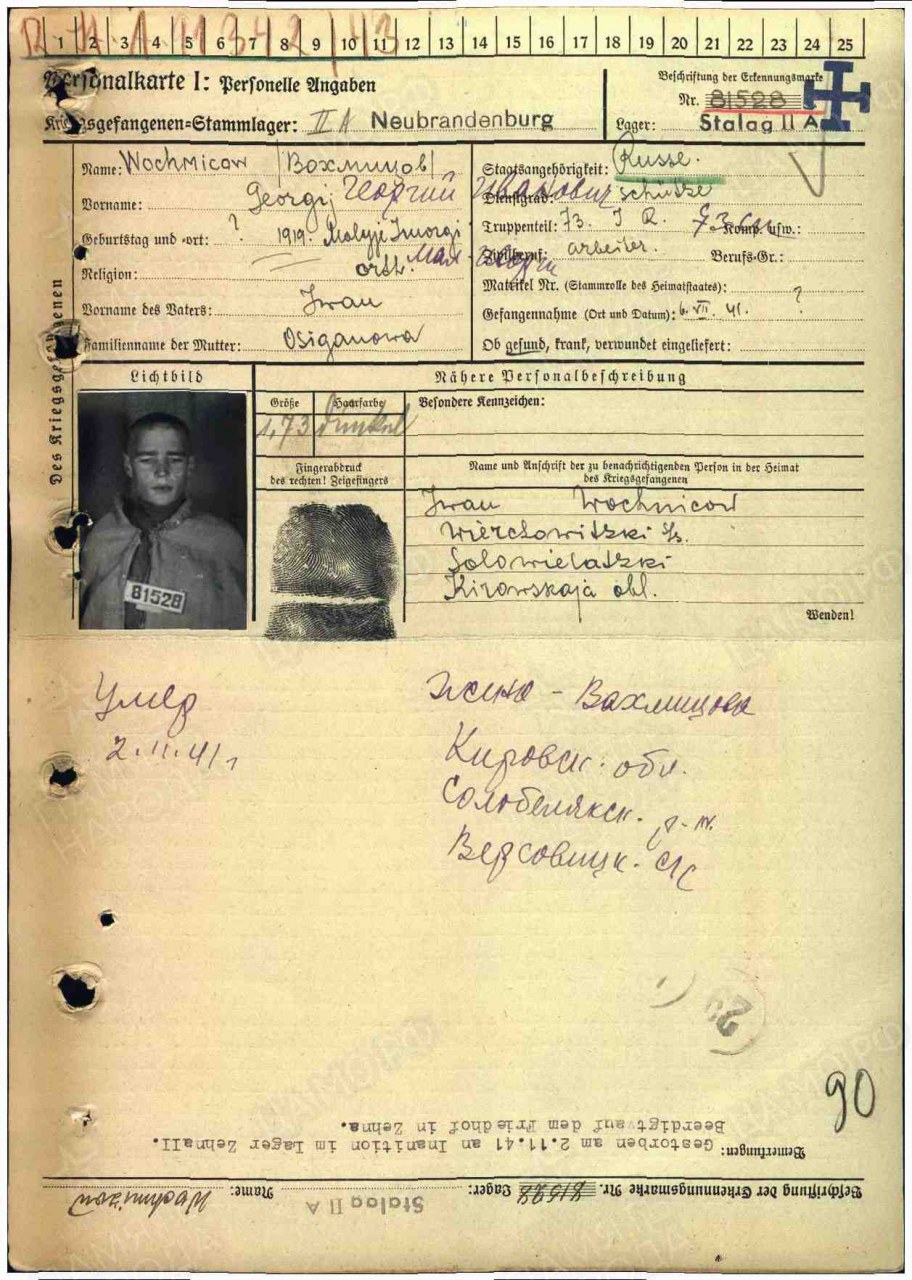 R.H.A. 11342/43
1 2 3 4 5 6 7 8 9 10 11 12 13 14 15 16 17 18 19 20 21 22 23 24 25
Personalkarte I: Personelle Angaben
Kriegsgefangenen-Stammlager: II A Neubrandenburg
Beschriftung der Erkennungsmarke
Nr. 81528
Lager: Stalag II A
Des Kriegsgefangenen
Name: Wochmicow /Вохмицов/
Vorname: Georgij Георгий Иванович
Geburtstag und -ort: ? 1919. Malyje Мал.
Religion: orth.
Vorname des Vaters: Iwan
Familienname der Mutter: Osiganowa
Staatsangehörigkeit: Russe.
Dienstgrad: Schütze
Truppenteil: 73. I R. 73 Komp. usw.:
Zivilberuf: arbeiter. Berufs-Gr.:
Matrikel Nr. (Stammrolle des Heimatstaates): ?
Gefangennahme (Ort und Datum): 6. VII. 41.
Ob gesund, krank, verwundet eingeliefert:
Lichtbild
81528
Nähere Personalbeschreibung
Größe Haarfarbe Besondere Kennzeichen:
1,73 dunkel
Fingerabdruck
des rechten! Zeigefingers
Name und Anschrift der zu benachrichtigenden Person in der Heimat
des Kriegsgefangenen
Iwan Wochnicow
Wierchowitzki s/s.
Solowielatzki
Kirowskaja obl.
Wenden!
Умер
2.11.41 г
жена - Вахмицова
Кировск. обл.
Солобелякск. р-н.
Версовицк. с/с
90
Bemerkungen: Gestorben am 2.11.41 an Inanition im Lager Zehna II.
Beerdigt auf dem Friedhof in Zehna.
Beschriftung der Erkennungsmarke Nr. 81528 Lager: Stalag II A Name: Wochmizow